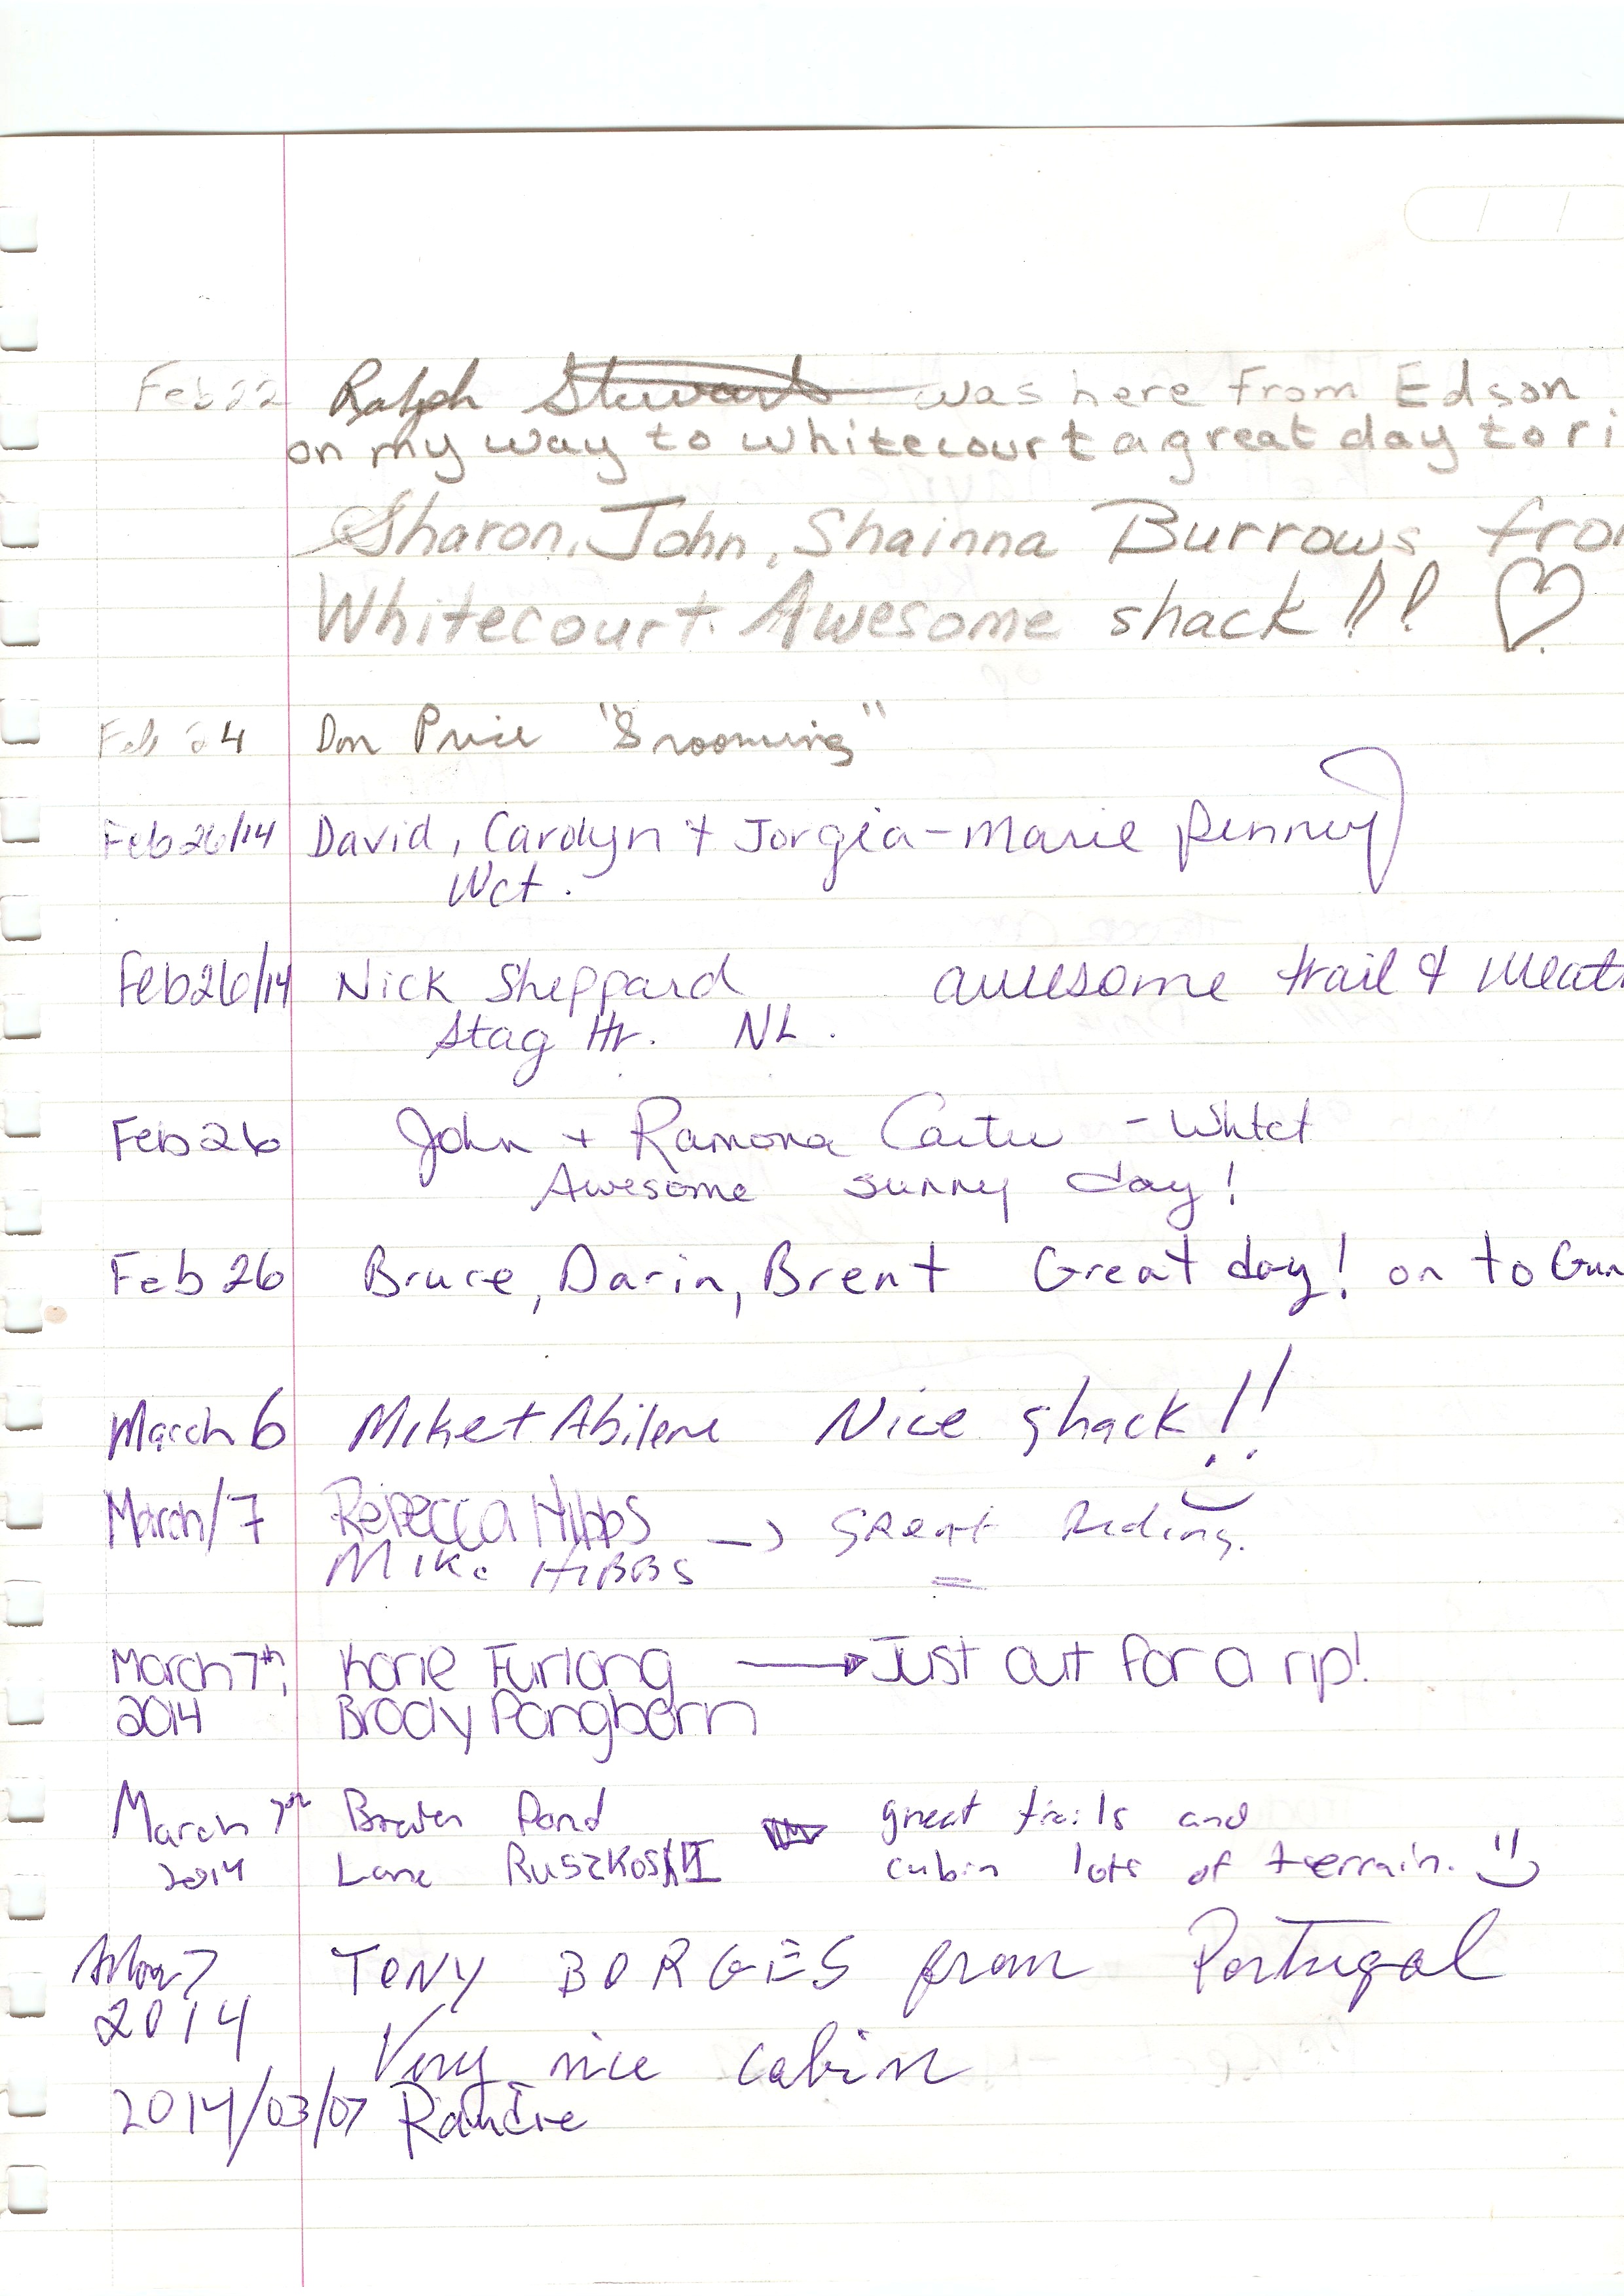 Feb 22 Ralph Stewart was here from Edson
on my way to whitecourt a great day to ri
Sharon, John, Shainna Burrows from
Whitecourt. Awesome shack!!!
Feb 24 Don Price "Grooming"
Feb 26/14 David, Carolyn + Jorgia-Marie Penney
Wct.
Feb 26/14 Nick Sheppard awesome trail & weath
Stag Hr. NL.
Feb 26 John + Ramona Carter - Whtct
Awesome sunny day!
Feb 26 Bruce, Darin, Brent Great day! on to Gun
March 6 Mike + Abilene Nice shack!!
March/7 Rebecca Hibbs
Mike HIBBS → GREAT Riding.
March 7th, Korie Furlong → Just out for a rip!
2014 Brody Pangborn
March 7th Braden Pond great trails and
2014 Lane RUSZKOSKI cabin lots of terrain. :)
Mar 7 TONY BORGES from Portugal
2014
Very nice cabin
2014/03/07